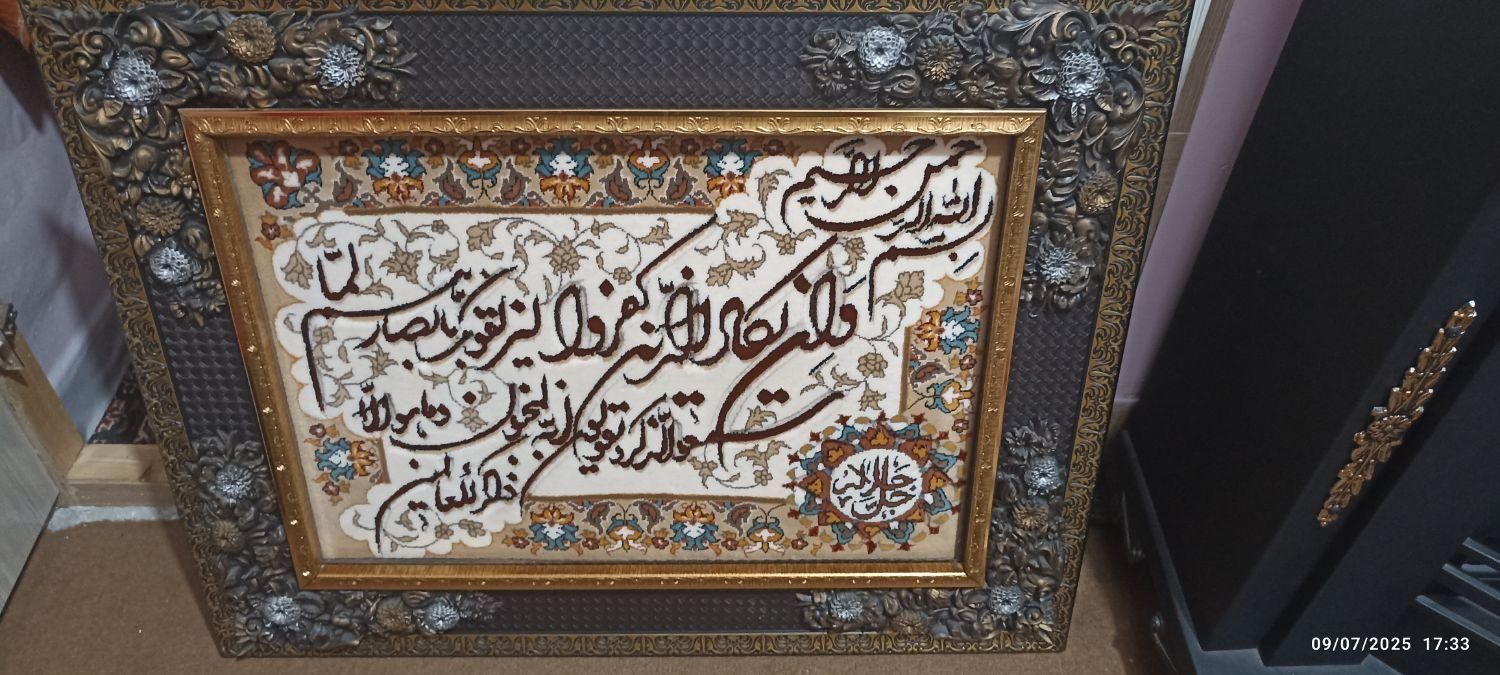 بسم الله الرحمن الرحیم
وان یکاد الذین کفروا لیزلقونک بابصارهم لما
سمعوا الذکر و یقولون انه لمجنون و ما هو الا
ذکر للعالمین
جل جلاله
09/07/2025 17:33